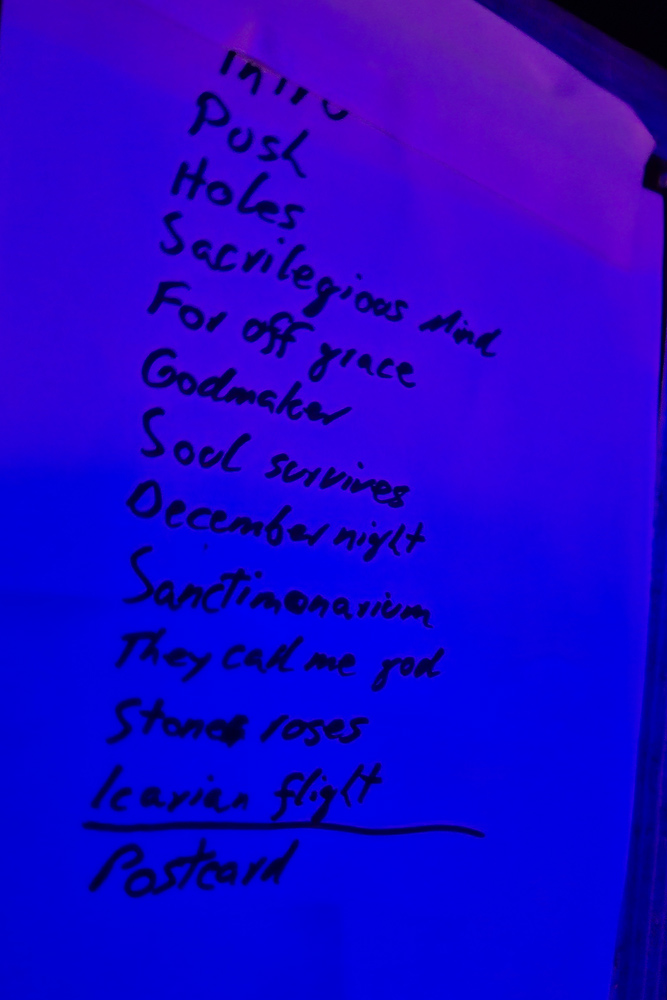 Intro
Push
Holes
Sacrilegious Mind
For off grace
Godmaker
Soul survives
December night
Sanctimonarium
They call me god
Stones roses
Icarian flight
Postcard